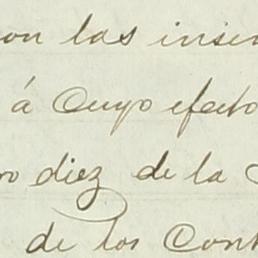 on las inser
á Cuyo efecto
ro diez de la
de los Cont